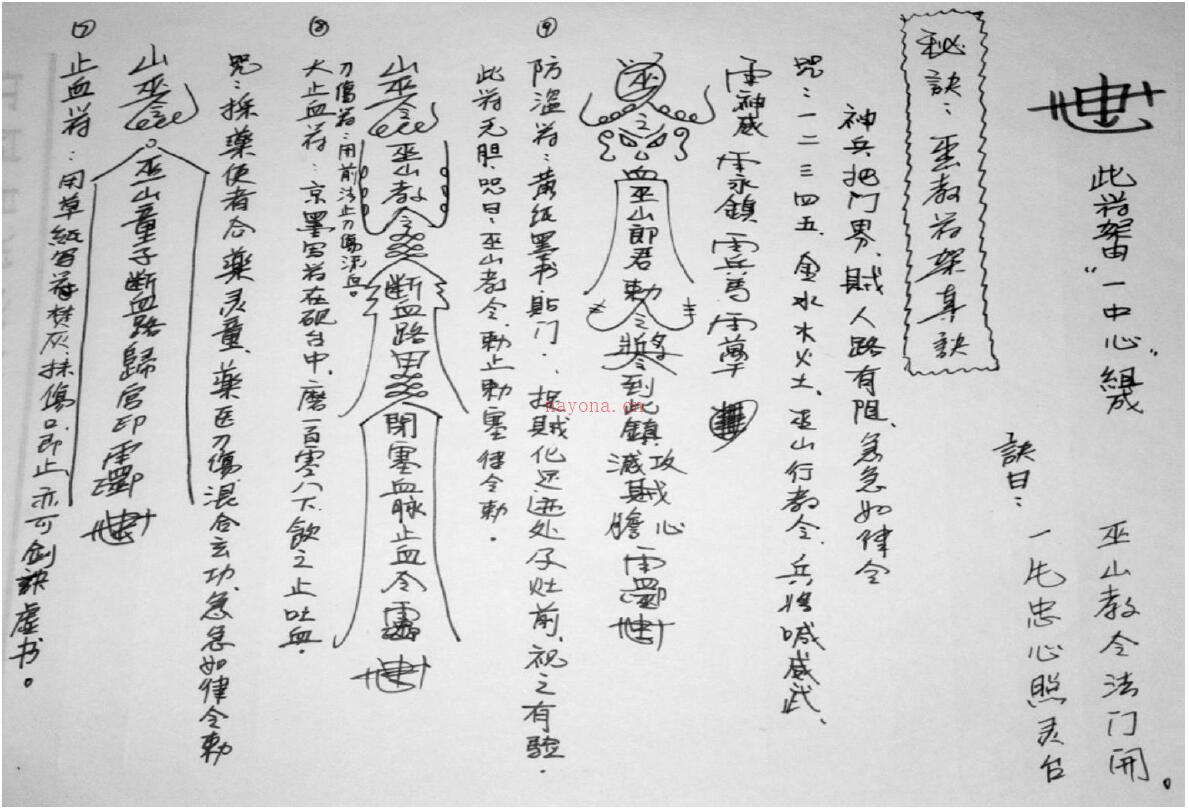 此符窗"一中心"組成
巫山教令法门開。
訣曰：
一片忠心照灵台
秘訣：巫教符架真訣
神兵把门界、賊人路有阻、急急如律令
咒：一二三四五、金水木火土、巫山行教令、兵将喊威武、
雷神威 雷永鎮 雷兵 雷
巫之
血巫山郎君敕令到此鎮攻賊心
滅賊膽
⑨ 防盜符：黄纸墨书貼门、祝之有验．
此符无胆、咒曰：巫山教令、勅止勅塞律令勅．
山巫令
巫山教令
断血路
閉塞血脉止血令
刀傷符：用前法止刀傷流血。
⑧ 大止血符：京墨写符在砚台中、磨一百零八下、飲之止吐血．
咒：採藥使者合藥灵童、藥医刀傷、混合玄功、急急如律令勅
山巫令
巫山童子断血路歸宫印
⑦ 止血符：用草紙写符焚灰、抹傷口即止、亦可剑訣虚书。
nayona.cn